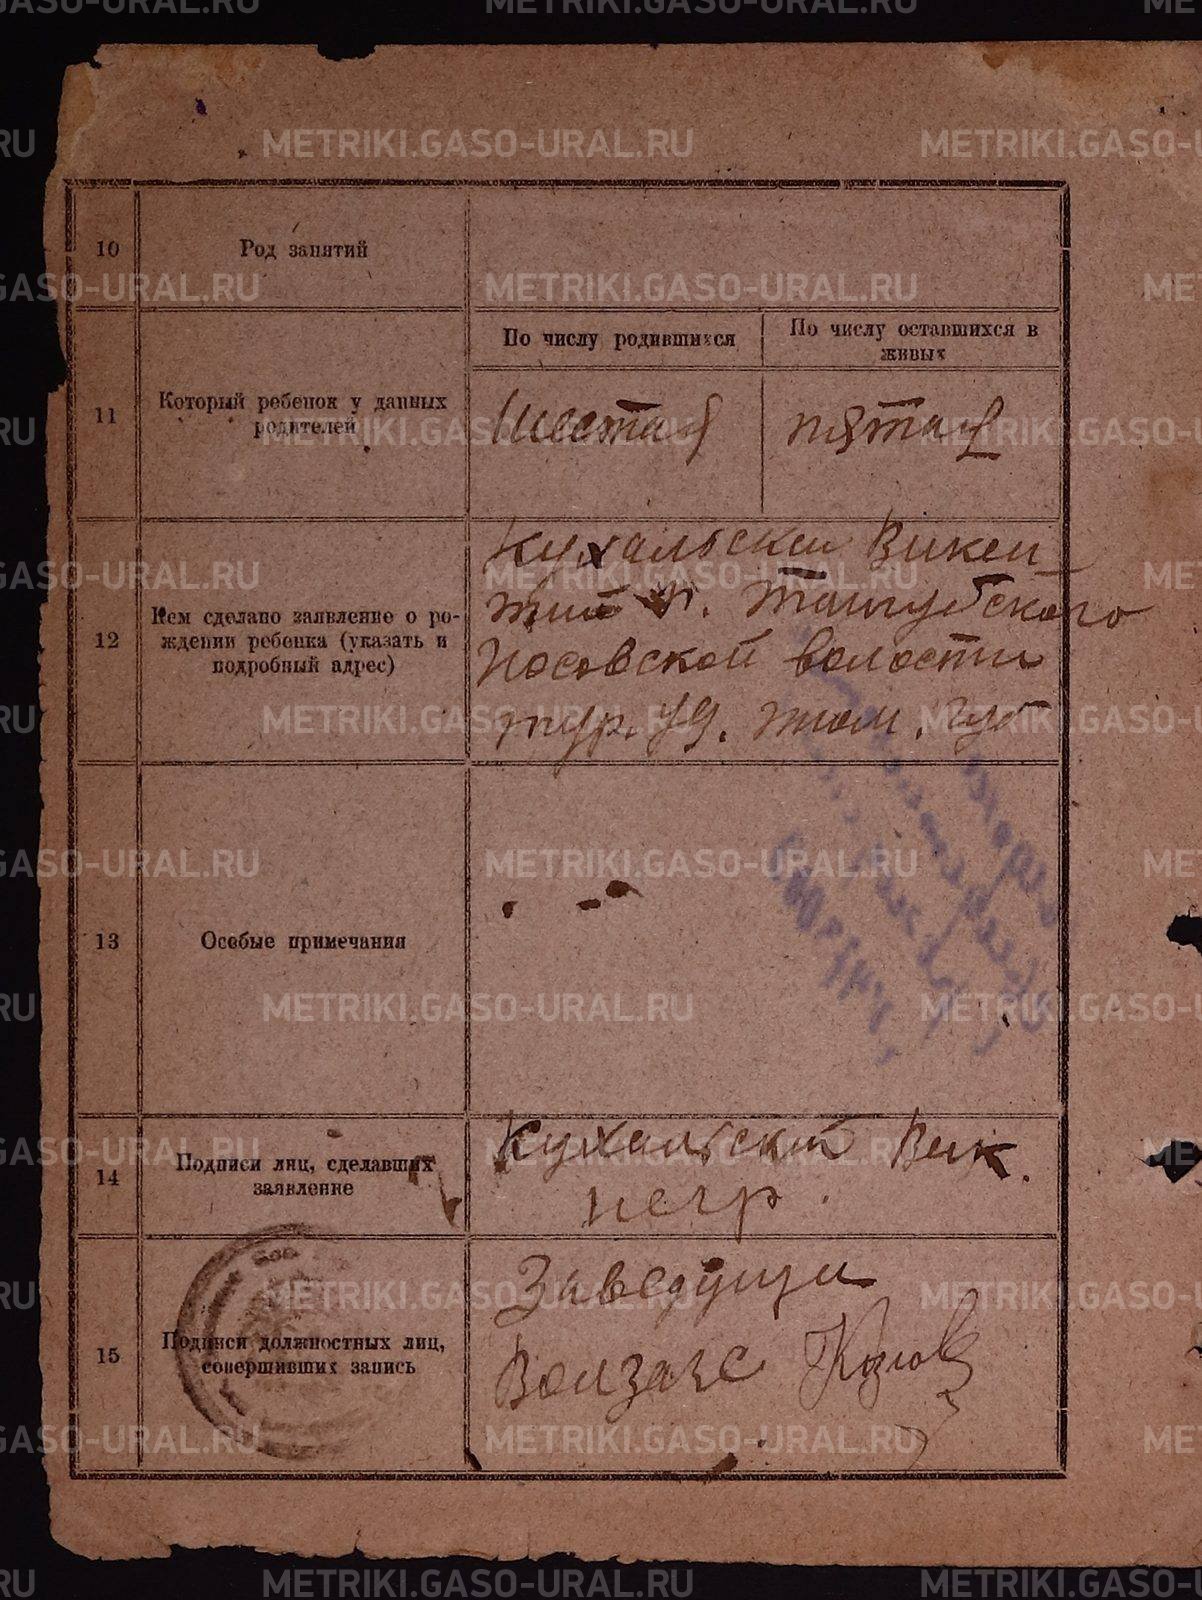 METRIKI.GASO-URAL.RU
10
Род занятий
11
Который ребенок у данных
родителей
По числу родившихся
По числу оставшихся в
живых
Шестая
пятая
12
Кем сделано заявление о ро-
ждении ребенка (указать и
подробный адрес)
Кухальский Викен
тий
волости
тур. уд. том. губ
13
Особые примечания
14
Подписи лиц, сделавших
заявление
Кухальский Вик.
негр.
15
Подписи должностных лиц,
совершивших запись
Заведущи
Волзагс